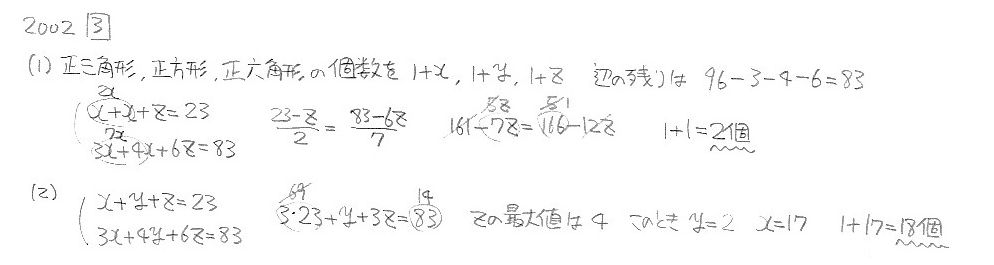 2002 3
(1) 正三角形, 正方形, 正六角形の個数を 1+x, 1+y, 1+z 辺の残りは 96-3-4-6=83
2x
x+x+z=23 23-z/2 = 83-6z/7 161-7z=166-12z 5z 5 1 1+1=2個
7x
3x+4x+6z=83
(2) x+y+z=23 69 3・23+y+3z=83 14 zの最大値は4 このとき y=2 x=17 1+17=18個
3x+4y+6z=83